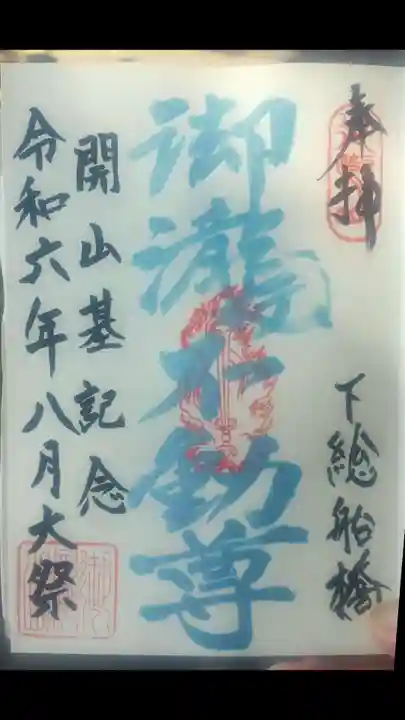 奉拝
下総船橋
御瀧不動尊
開山基記念
令和六年八月大祭